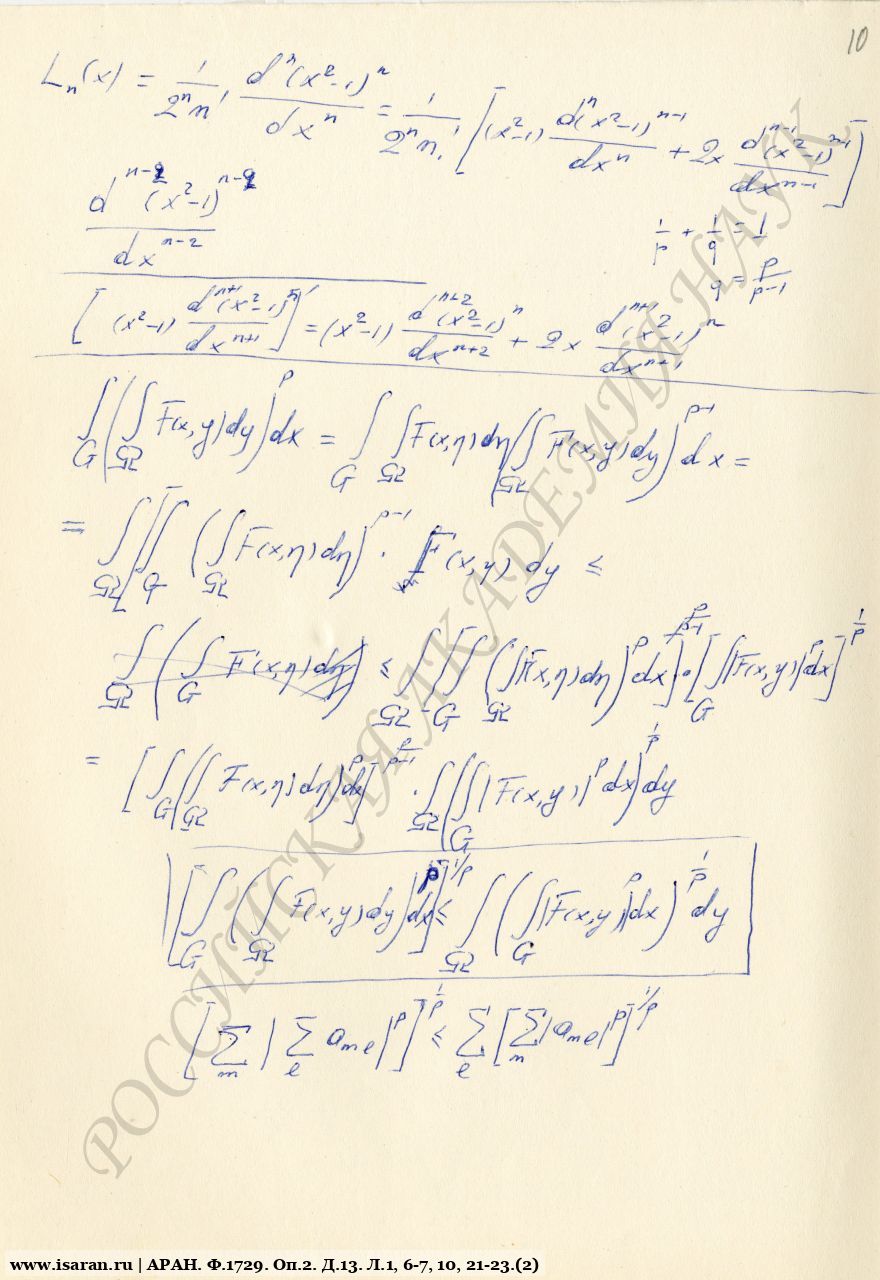 10
L_n(x) = 1/(2^n n!) d^n(x^2-1)^n/dx^n = 1/(2^n n!) [(x^2-1) d^n(x^2-1)^{n-1}/dx^n + 2x d^{n-1}(x^2-1)^{n-1}/dx^{n-1}]
d^{n-2}(x^2-1)^{n-2}/dx^{n-2}
1/p + 1/q = 1
q = p/(p-1)
[(x^2-1) d^{n+1}(x^2-1)^n/dx^{n+1}]' = (x^2-1) d^{n+2}(x^2-1)^n/dx^{n+2} + 2x d^{n+1}(x^2-1)^n/dx^{n+1}
∫_G (∫_Ω F(x,y)dy)^p dx = ∫_G ∫_Ω F(x,η)dη (∫_Ω F(x,y)dy)^{p-1} dx =
= ∫_Ω [∫_G (∫_Ω F(x,η)dη)^{p-1} · F(x,y) dy ≤
∫_Ω (∫_G F(x,η)dη) ≤ ∫_Ω [∫_G (∫_Ω F(x,η)dη)^p dx]^{p/(p-1)} · [∫_G |F(x,y)|^p dx]^{1/p}
= [∫_G (∫_Ω F(x,η)dη)^p dx]^{p/(p-1)} · ∫_Ω (∫_G |F(x,y)|^p dx)^{1/p} dy
[∫_G (∫_Ω F(x,y)dy)^p dx]^{1/p} ≤ ∫_Ω (∫_G |F(x,y)|^p dx)^{1/p} dy
[∑_m |∑_l a_{ml}|^p]^{1/p} ≤ ∑_l [∑_m |a_{ml}|^p]^{1/p}
РОССИЙСКАЯ АКАДЕМИЯ НАУК
www.isaran.ru | АРАН. Ф.1729. Оп.2. Д.13. Л.1, 6-7, 10, 21-23.(2)